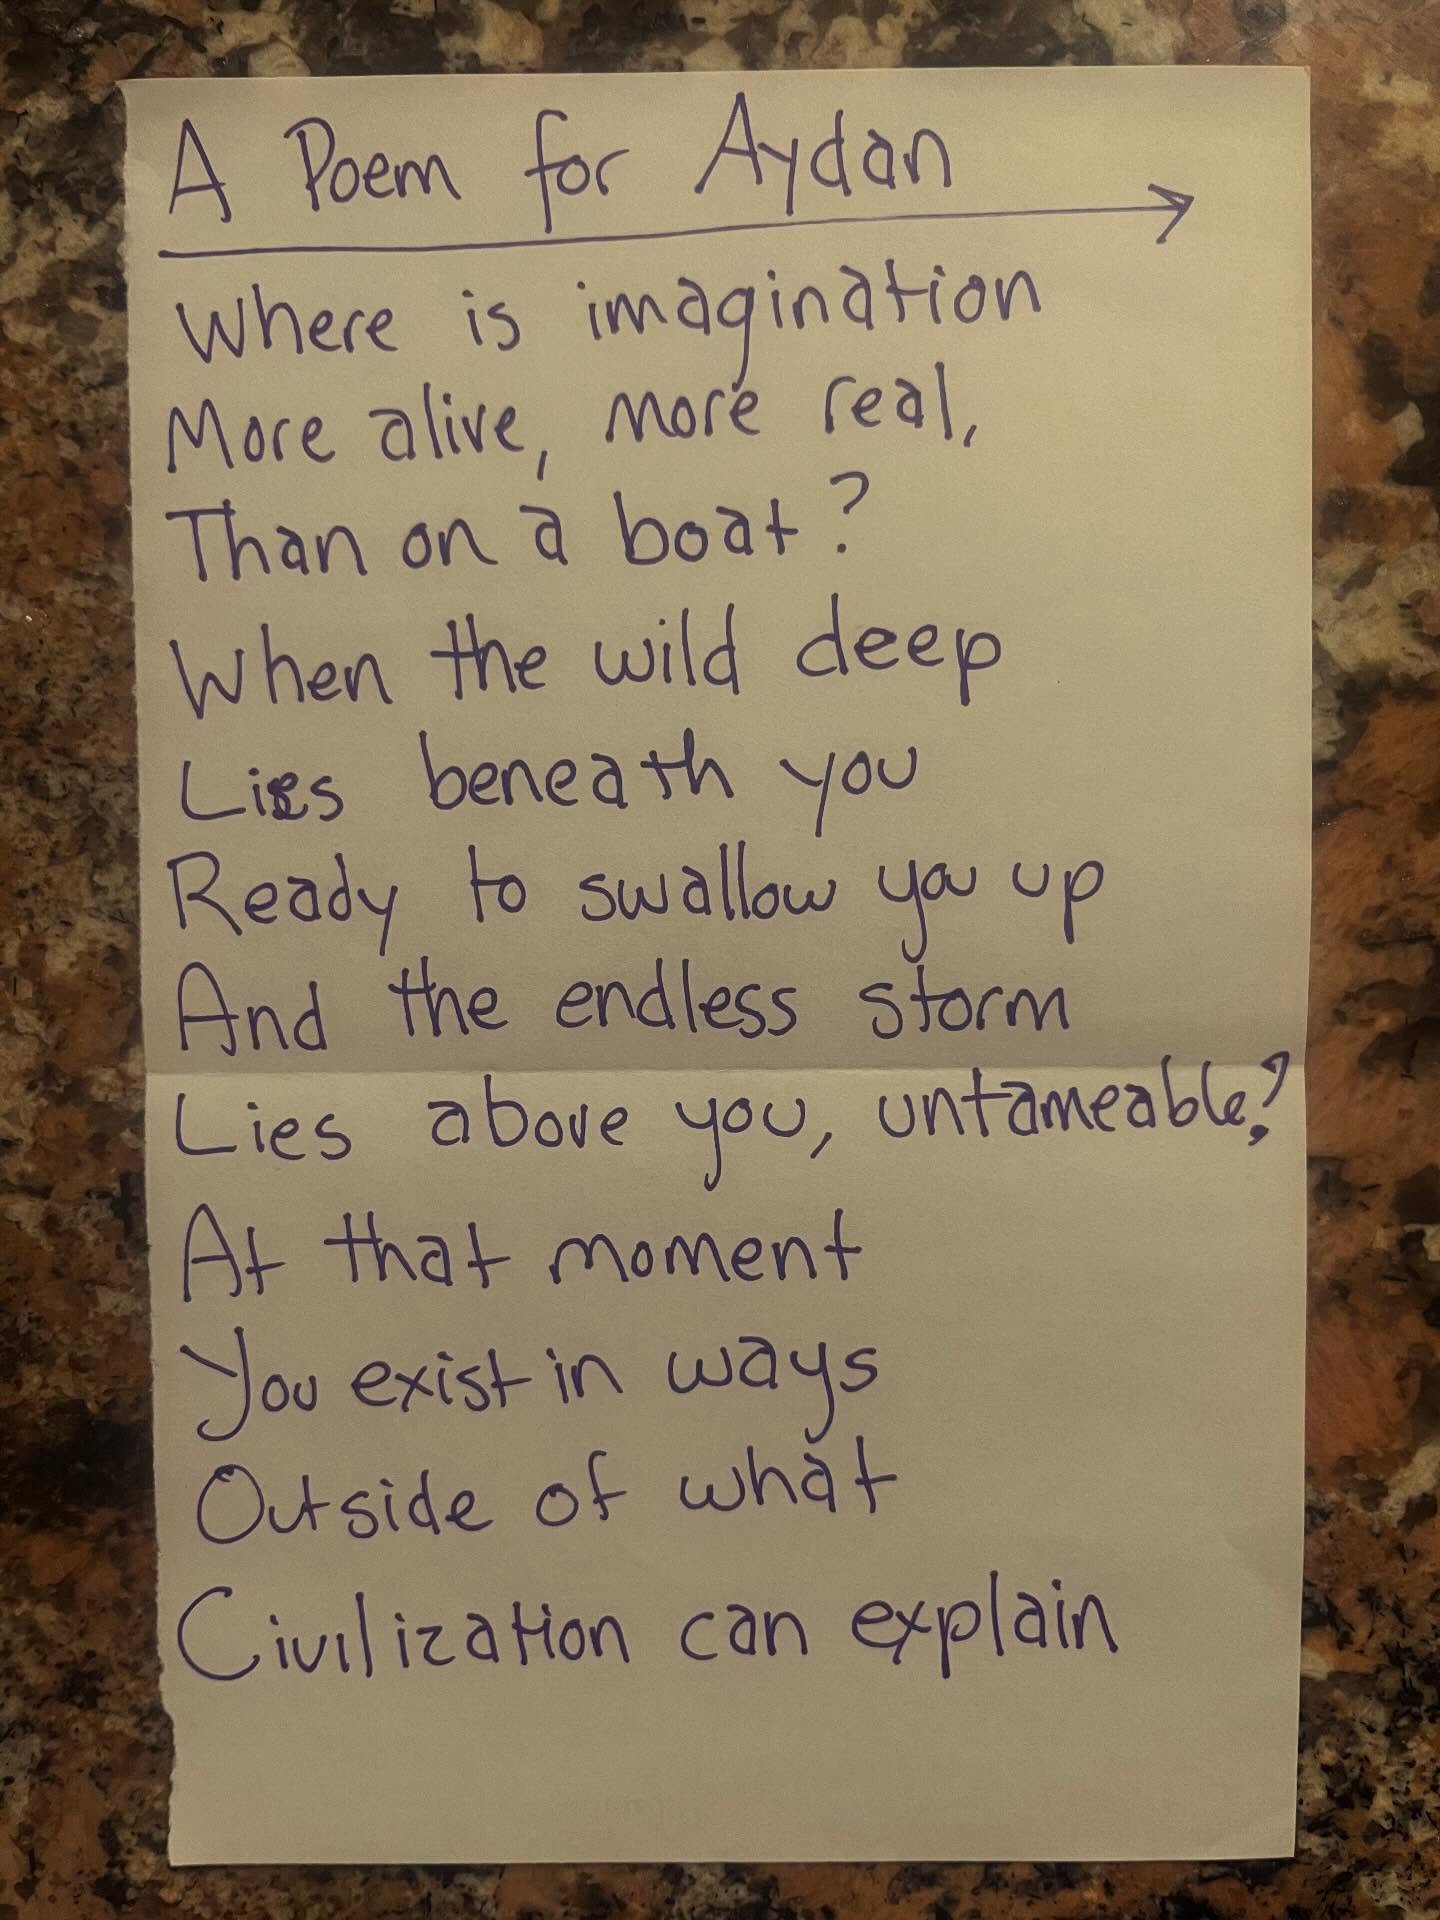 A Poem for Aydan
Where is imagination
More alive, more real,
Than on a boat?
When the wild deep
Lies beneath you
Ready to swallow you up
And the endless storm
Lies above you, untameable?
At that moment
You exist in ways
Outside of what
Civilization can explain